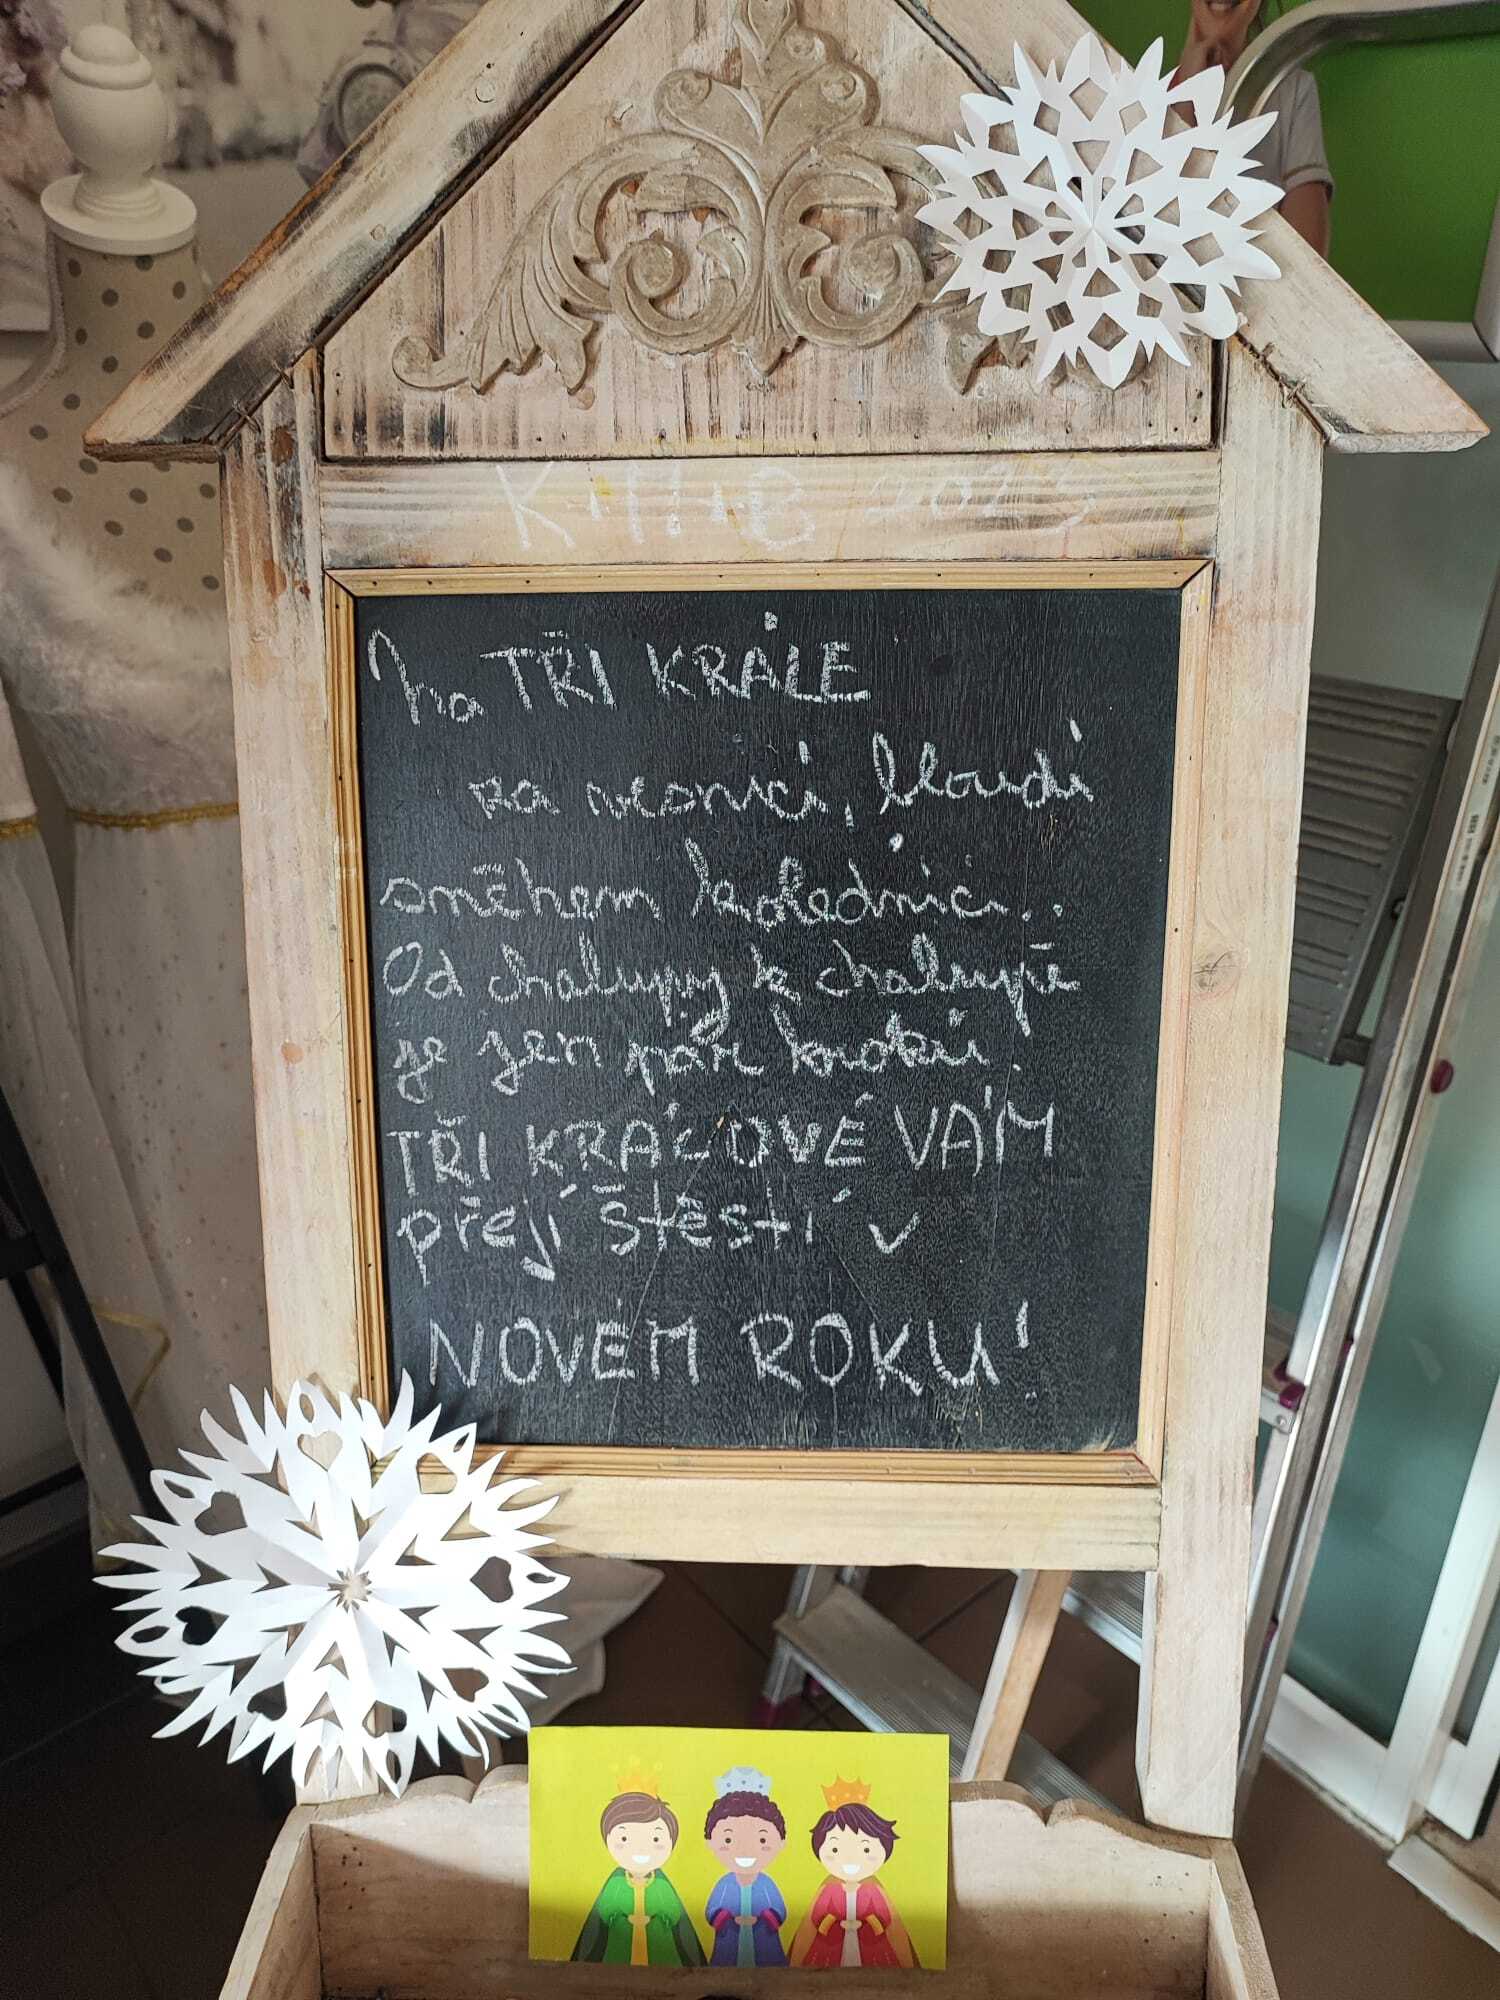 K+M+B 2023
Na TŘI KRÁLE
za vesnicí, bloudí
sněhem koledníci..
Od chalupy k chalupě
je jen pár kroků
TŘI KRÁLOVÉ VÁM
přejí štěstí v
NOVÉM ROKU!